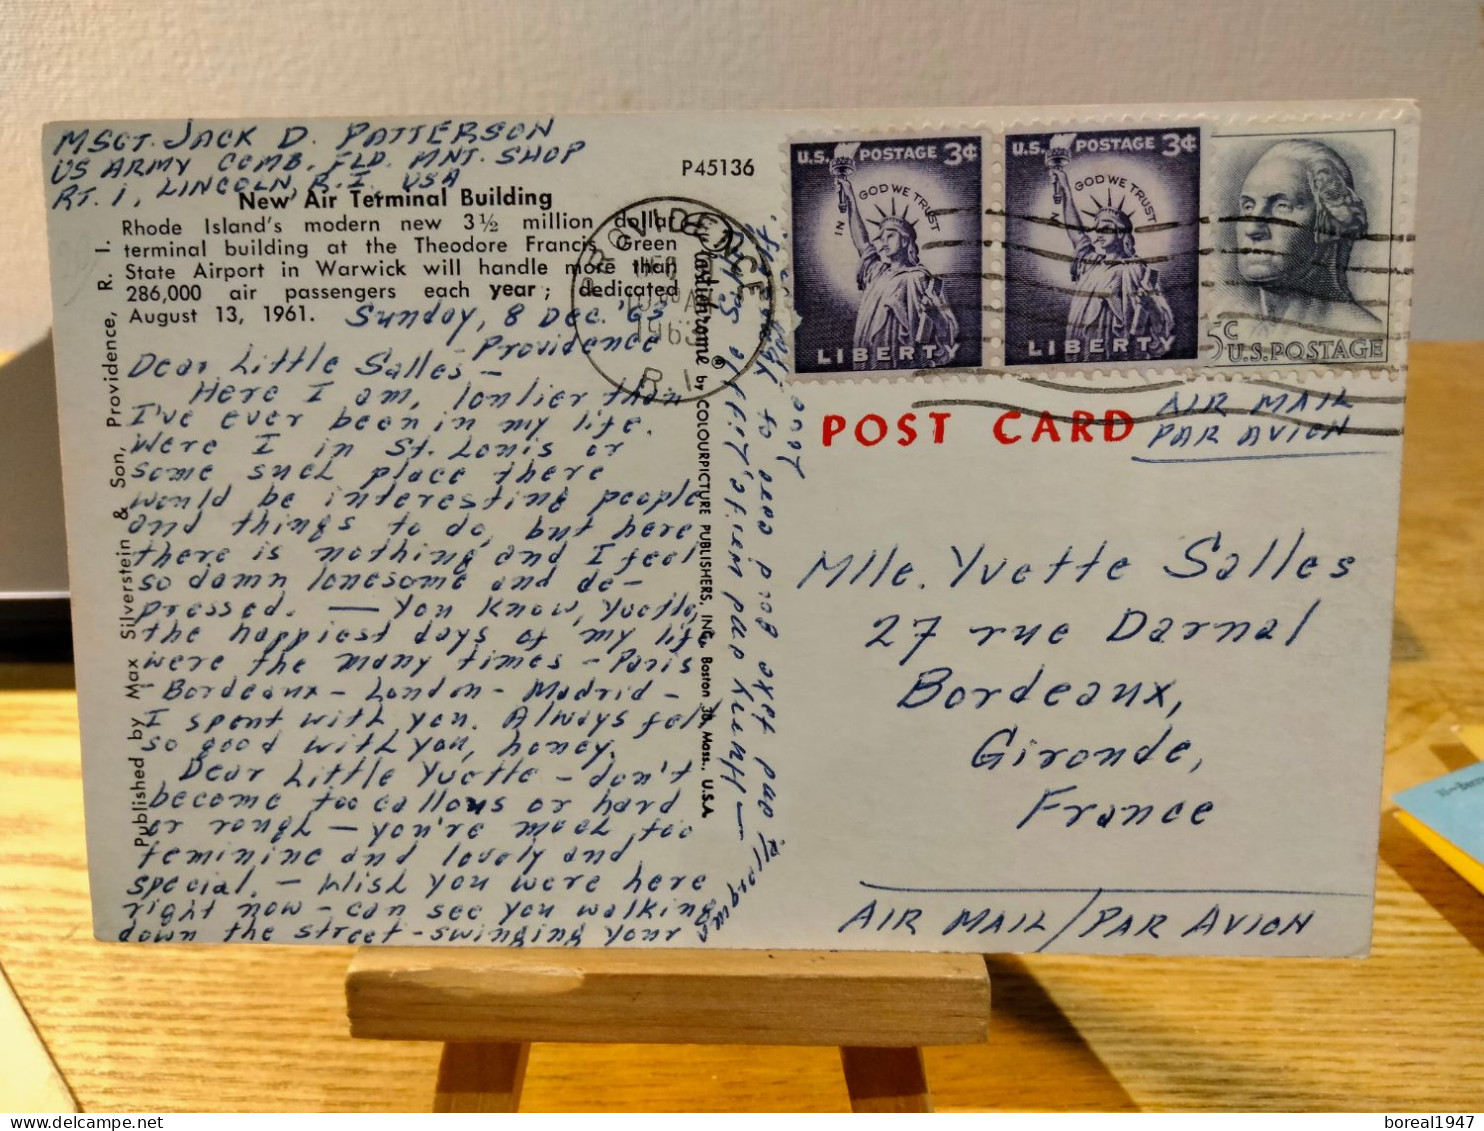 MSGT. JACK D. PATTERSON
US ARMY COMB. FLD. MNT. SHOP
RT. 1, LINCOLN, R.I. USA
New Air Terminal Building
Rhode Island's modern new 3½ million dollar
terminal building at the Theodore Francis Green
State Airport in Warwick will handle more than
286,000 air passengers each year; dedicated
August 13, 1961.
P45136
Sunday, 8 Dec. '63
- Providence
Dear Little Salles -
Here I am, lonlier than
I've ever been in my life.
Were I in St. Louis or
some such place there
would be interesting people
and things to do, but here
there is nothing and I feel
so damn lonesome and de-
pressed. — You know, Yvette,
the happiest days of my life
were the many times - Paris
- Bordeaux - London - Madrid -
I spent with you. Always felt
so good with you, honey.
Dear Little Yvette - don't
become too callous or hard
or rough — you're much too
feminine and lovely and
special. - Wish you were here
right now - can see you walking
down the street - swinging your
— Hurry and write, Yvette
and take good care of yourself
Love
Published by Max Silverstein & Son, Providence, R. I.
Plastichrome ® by COLOURPICTURE PUBLISHERS, INC., Boston 30, Mass., U.S.A.
PROVIDENCE
AM
1963
R I
U.S. POSTAGE 3¢
IN GOD WE TRUST
LIBERTY
U.S. POSTAGE 3¢
IN GOD WE TRUST
LIBERTY
5c
U.S. POSTAGE
POST CARD
AIR MAIL
PAR AVION
Mlle. Yvette Salles
27 rue Darnal
Bordeaux,
Gironde,
France
AIR MAIL/PAR AVION
boreal1947